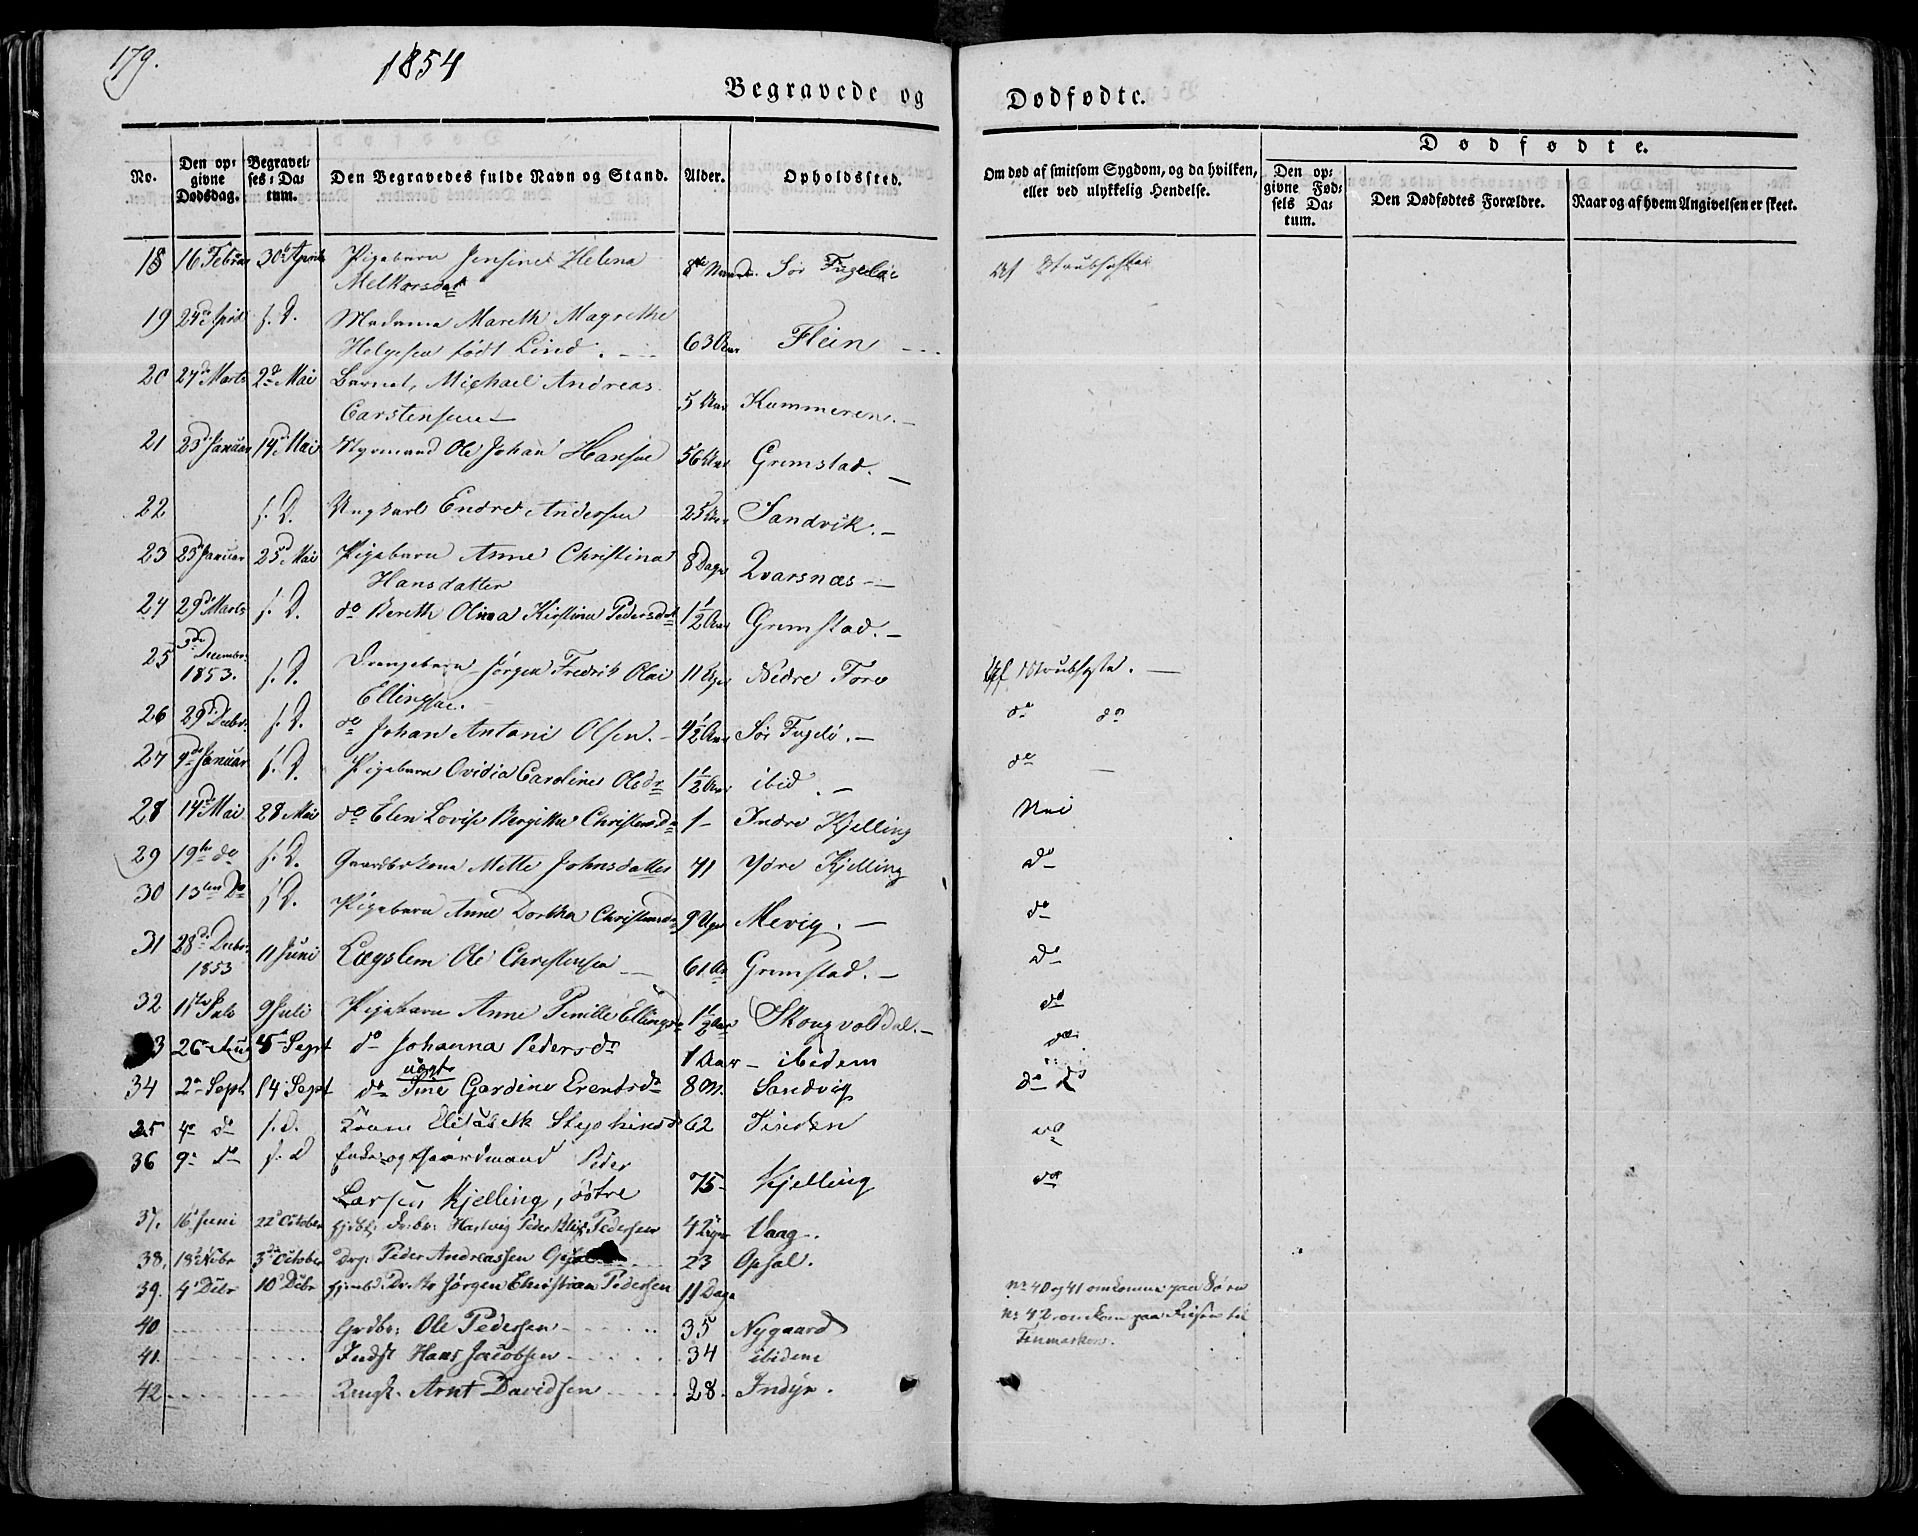 179.
1854
Begravede og
Dødfødte.
No.
Den op-
givne
Dødsdag.
Begravel-
ses-Da-
tum.
Den Begravedes fulde Navn og Stand.
Alder.
Opholdssted.
Om død af smitsom Sygdom, og da hvilken,
eller ved ulykkelig Hendelse.
Dødfødte.
Den op-
givne Fød-
sels Da-
tum.
Den Dødfødtes Forældre.
Naar og af hvem Angivelsen er skeet.
18 16 Februar 30 April Pigebarn Jensine Helena Sør Fugeløe Af Strubehoste
Melkorsdat
19 24 April s. D. Madame Mareth Magrethe
Helgesen født Lind. 63 Aar Flein
20 27 Marts 2d Mai Barnet Michael Andreas
Carstensen 5 Aar Kummeren.
21 23 Januar 14d Mai Styrmand Ole Johan Hansen 56 Aar Grimstad.
22 s. D. Ungkarl Endre Andersen 25 Aar Sandvik.
23 25 Januar 25d Mai Pigebarn Anne Christina 8 Dage Qvarsnæs
Hansdatter
24 29 Marts s. D. do Bereth Olina Kirstine Pedersdat 1 1/2 Aar Grimstad.
25 3de Decembr. 1853. s. D. Drengebarn Jørgen Fredrik Olai 11 Uger Nedre Fore Af Strubesyge.
Ellingsen.
26 29d Decbr. s. D. do Johan Antoni Olsen. 4 1/2 Aar Sør Fugelø. do do
27 9de Januar s. D. Pigebarn Ovidia Caroline Olsdr 1 1/2 Aar ibid. do
28 14d Mai 28 Mai do Elen Lovise Bergitte Christensd 1 Indre Kjelling Nei
29 19de do s. D. Gaardbrkone Mette Johnsdatter 71 Ydre Kjelling do
30 13ten Do s. D. Pigebarn Anne Dorthea Christensd 9 Uger Mevig. do
31 28d Decbr. 1853 11 Juni Lægslem Ole Christensen 61 Aar Grimstad. do
32 11te Juli 9 Juli Pigebarn Anne Pernille Ellingsd 1 1/2 Aar Skougvolddal. do
33 26 Aug 4 Sept do Johanna Pedersdr 1 Aar ibidem do
uægte
34 2d Sept 14 Sept do Tine Gardine Erentsdr 8 M. Sandvig do do
25 4d do s. D. Elisabeth 62 Tinden do
36 9d do s. D Enke og Gaardmand Peder
Larsen Kjelling, søtre 75 Kjelling do
37. 16 Juni 22 October Hartvig Peder Pedersen 4 Uger Vaag.
38. 18 Nobr 3d October Drg. Peder Andreassen Opsal 23 Opsal.
39. 4 Debr 10 Debr Jørgen Christian Pedersen 11 Dage
40 Grdbr: Ole Pedersen 35 Nygaard
41. Indst Hans Jacobsen 34 ibidem
42 Ungk. Arnt Davidsen 28. Indyr.
No 40 og 41 omkomne paa Søen
No 42 omkom paa Reisen til
Finmarken.